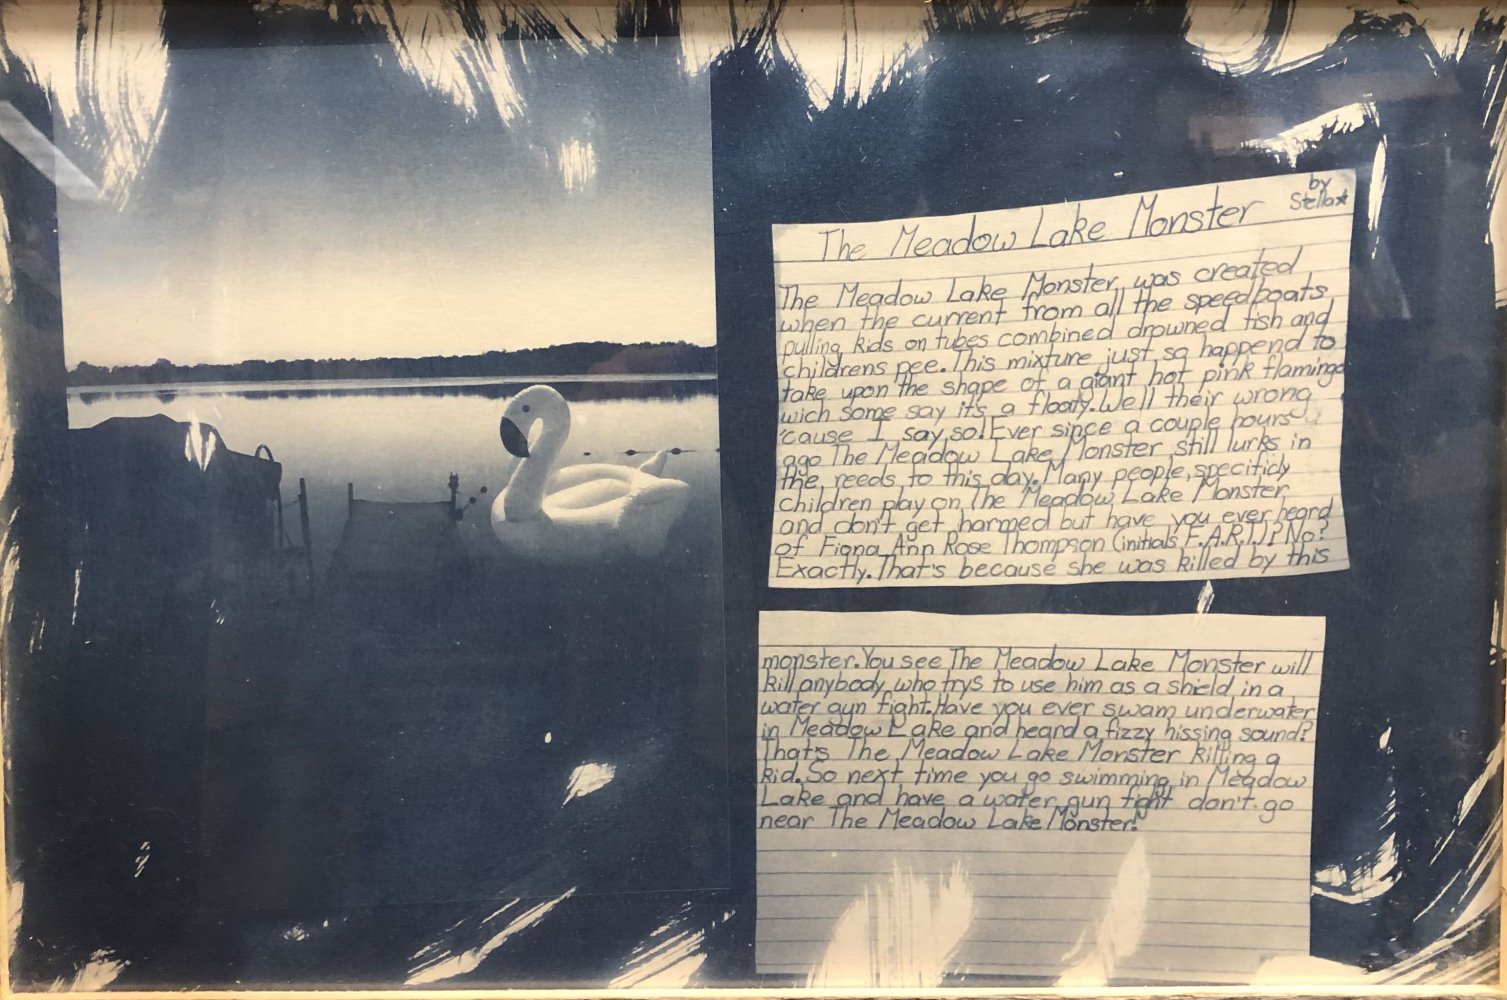 by
Stella★
The Meadow Lake Monster
The Meadow Lake Monster, was created
when the current from all the speedboats
pulling kids on tubes combined drowned fish and
childrens pee. This mixture just so happend to
take upon the shape of a giant hot pink flamingo
wich some say it's a floaty. Well their wrong
'cause I say so! Ever since a couple hours
ago The Meadow Lake Monster still lurks in
the reeds to this day. Many people, specificly
children play on The Meadow Lake Monster
and don't get harmed but have you ever heard
of Fiona Ann Rose Thompson (initials F.A.R.T.)? No?
Exactly. That's because she was killed by this
monster. You see The Meadow Lake Monster will
kill anybody who trys to use him as a shield in a
water gun fight. Have you ever swam underwater
in Meadow Lake and heard a fizzy hissing sound?
That's The Meadow Lake Monster killing a
kid. So next time you go swimming in Meadow
Lake and have a water gun fight don't go
near The Meadow Lake Monster!